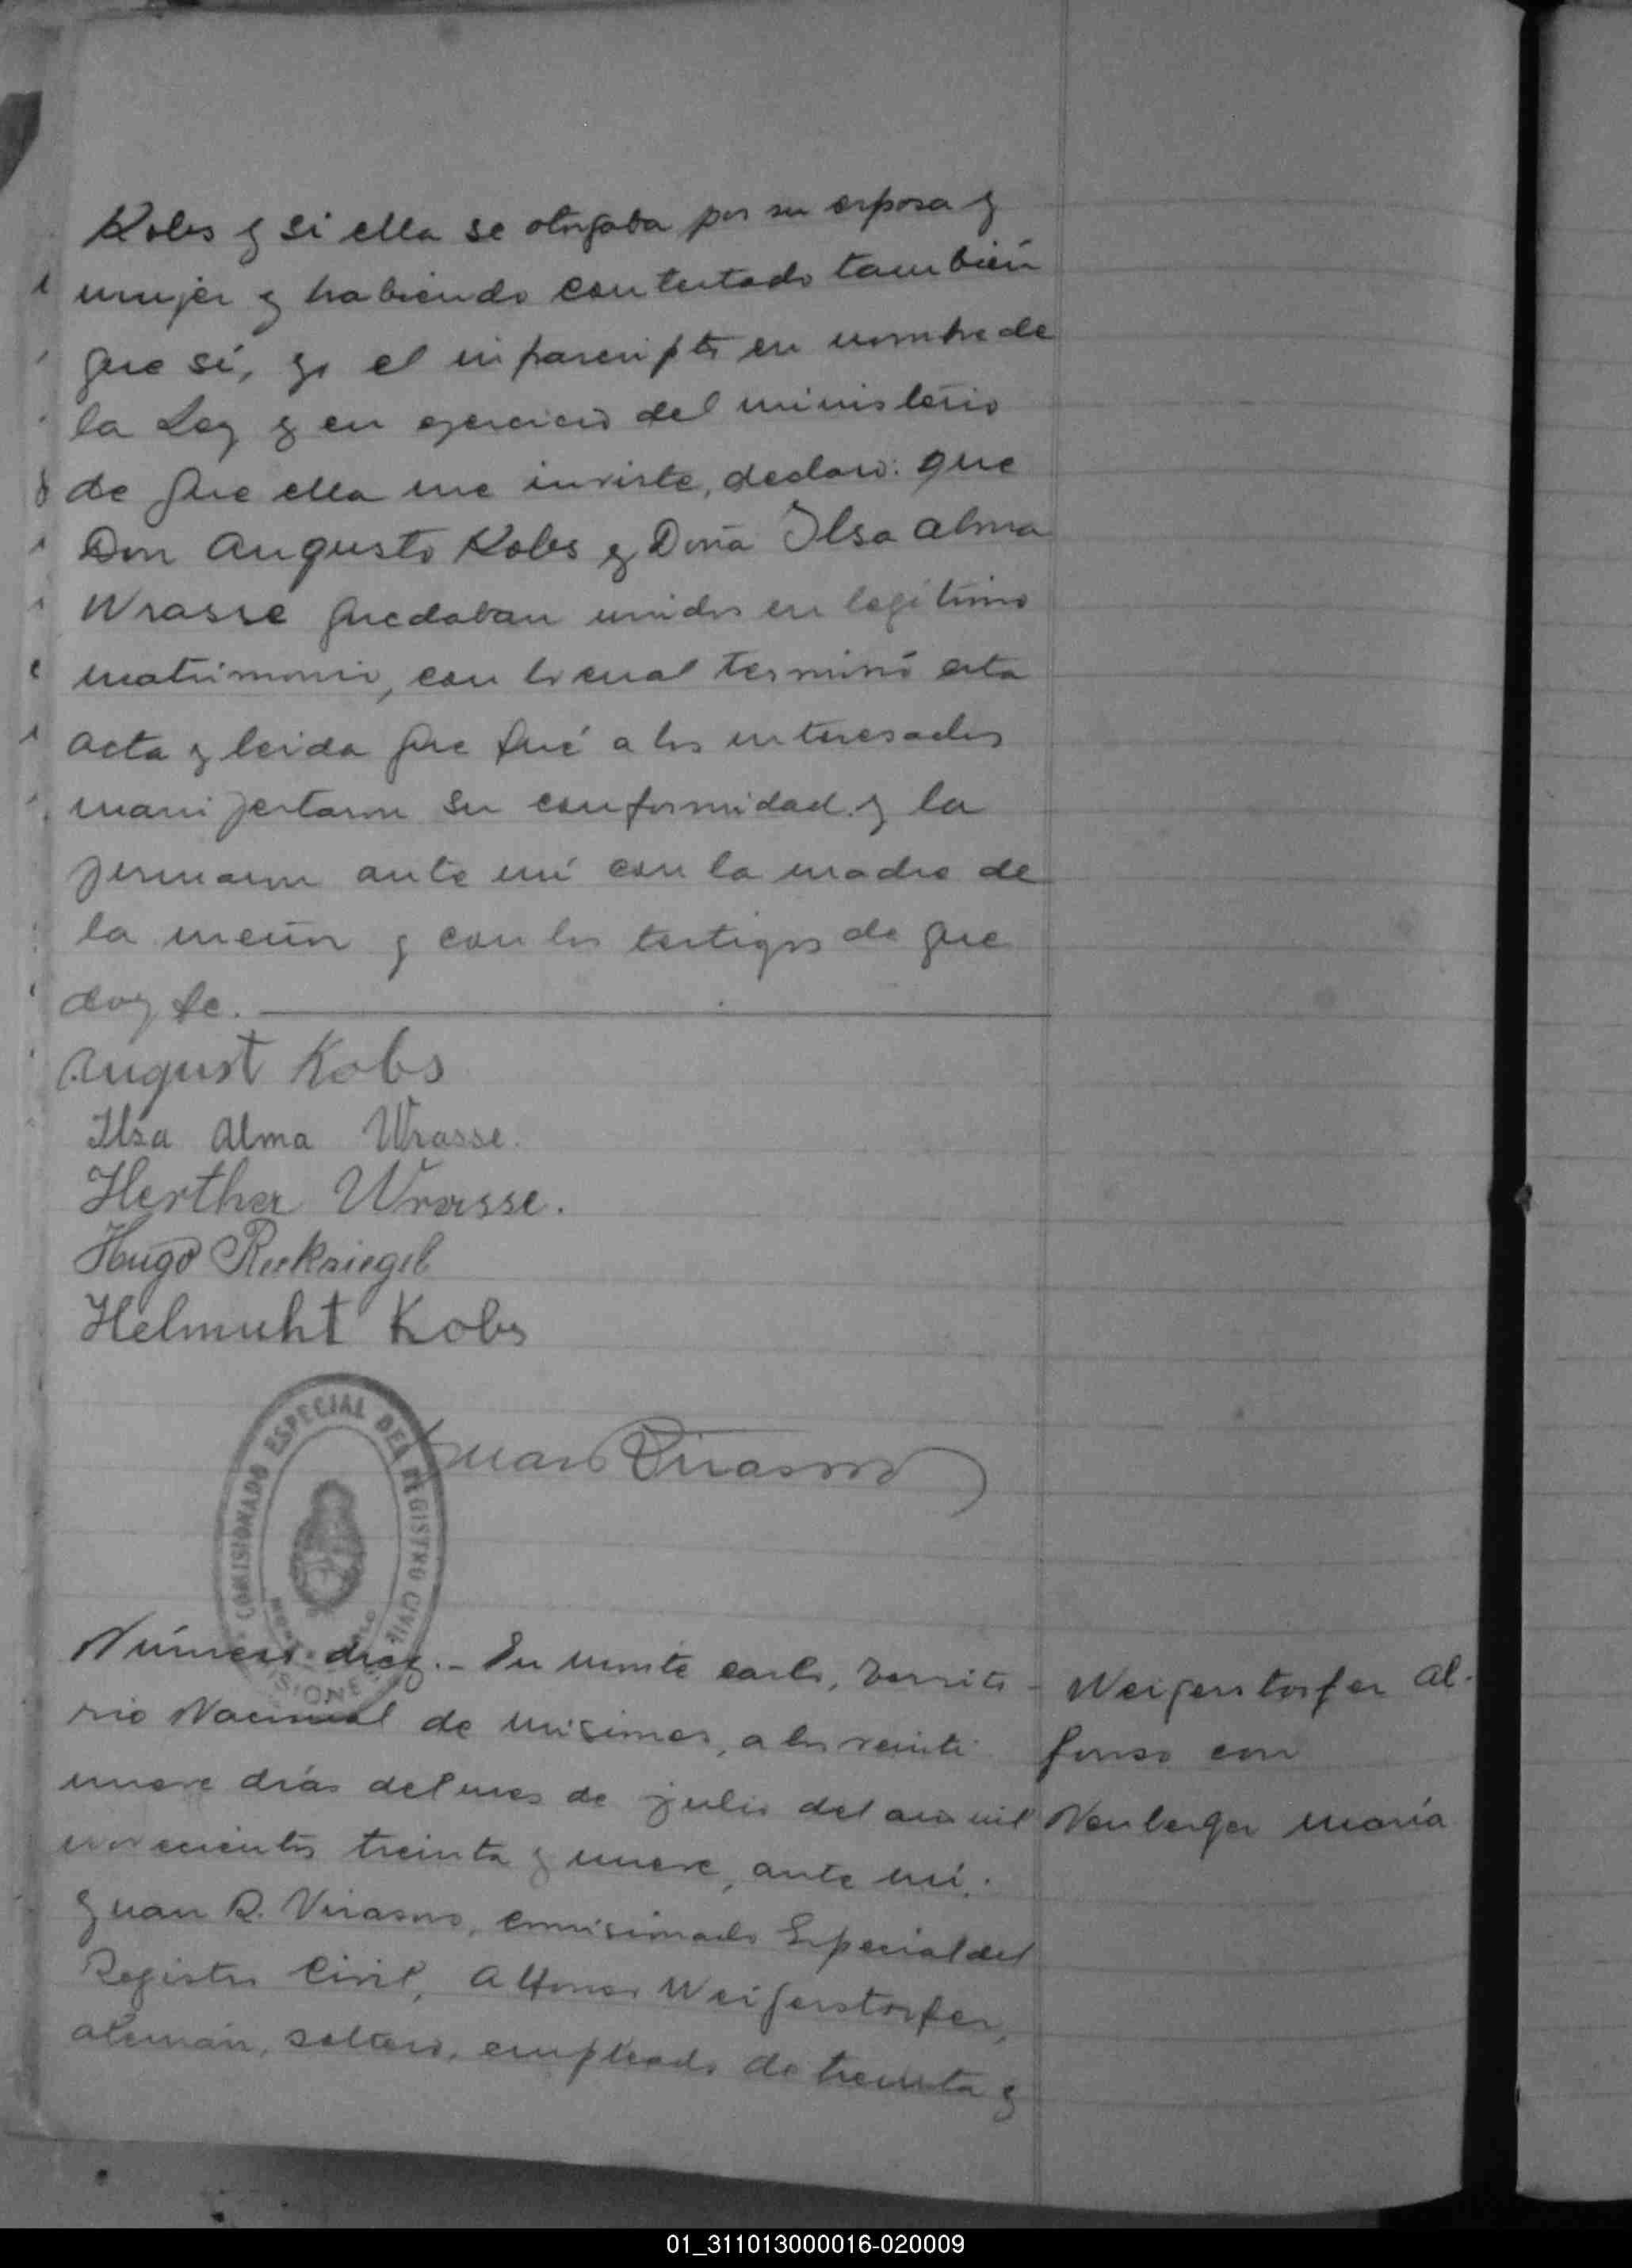 Kobs y si ella se otorgaba por su esposa y
mujer y habiendo contestado también
que sí, yo el infrascripto en nombre de
la Ley y en ejercicio del ministerio
de que ella me inviste, declaro: que
Don Augusto Kobs y Doña Ilsa Alma
Wrasse quedaban unidos en legítimo
matrimonio, con lo cual terminó esta
acta y leida que fué a los interesados
manifestaron su conformidad y la
firmaron ante mí con la madre de
la menor y con los testigos de que
doy fe.
August Kobs
Ilsa Alma Wrasse.
Herther Wrasse.
Hugo Recksiegel
Helmuht Kobs
Juan Virasoro
COMISIONADO ESPECIAL DEL REGISTRO CIVIL
MISIONES
Número diez.- En Monte Carlo, Territo-
rio Nacional de Misiones, a los veinti
nueve días del mes de julio del año mil
novecientos treinta y nueve, ante mí,
Juan R. Virasoro, Comisionado Especial del
Registro Civil, Alfonso Weigerstorfer,
alemán, soltero, empleado de treinta y
Weigerstorfer Al-
fonso con
Neuberger María
01_311013000016-020009